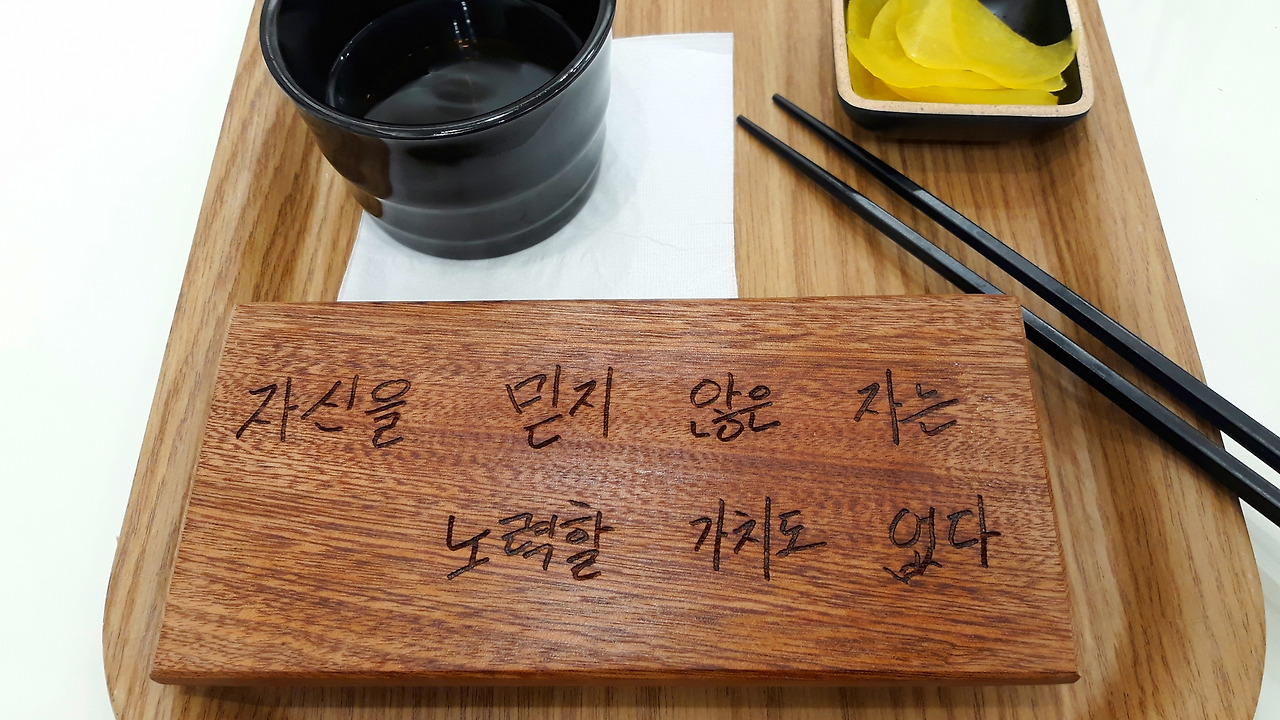 자신을 믿지 않은 자는
노력할 가치도 없다